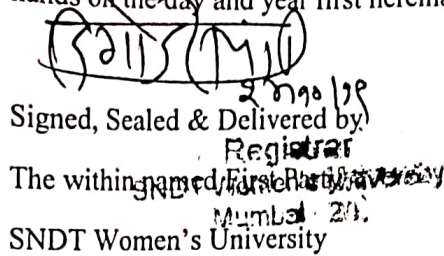 hands on the day and year first herein
Signed, Sealed & Delivered by
Registrar
The within named First Party
SNDT Women's University
Mumbai - 20.
SNDT Women's University